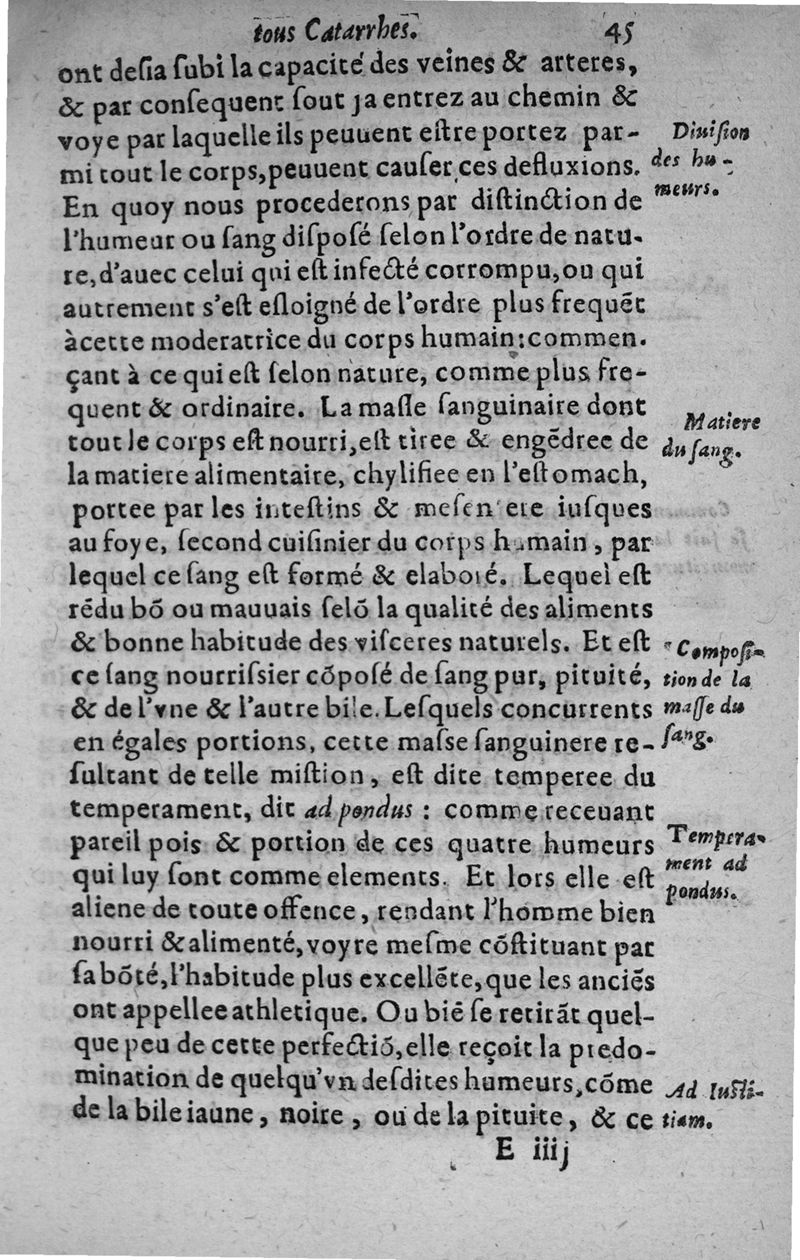 tous Catarrhes. 45
ont desia subi la capacité des veines & arteres,
& par consequent sout ja entrez au chemin &
voye par laquelle ils peuuent estre portez par-
mi tout le corps, peuuent causer ces defluxions.
En quoy nous procederons par distinction de
l'humeur ou sang disposé selon l'ordre de natu-
re, d'auec celui qui est infecté corrompu, ou qui
autrement s'est esloigné de l'ordre plus frequēt
à cette moderatrice du corps humain: commen.
çant à ce qui est selon nature, comme plus fre-
quent & ordinaire. La masse sanguinaire dont
tout le corps est nourri, est tiree & engēdree de
la matiere alimentaire, chylifiee en l'estomach,
portee par les intestins & mesen ere iusques
au foye, second cuisinier du corps humain, par
lequel ce sang est formé & elaboré. Lequel est
rēdu bō ou mauuais selō la qualité des aliments
& bonne habitude des visceres naturels. Et est
ce sang nourrissier cōposé de sang pur, pituité,
& de l'vne & l'autre bile. Lesquels concurrents
en égales portions, cette masse sanguinere re-
sultant de telle mistion, est dite temperee du
temperament, dit ad pondus: comme receuant
pareil pois & portion de ces quatre humeurs
qui luy sont comme elements. Et lors elle est
aliene de toute offence, rendant l'homme bien
nourri & alimenté, voyre mesme cōstituant par
sa bōté, l'habitude plus excellēte, que les anciēs
ont appellee athletique. Ou biē se retirāt quel-
que peu de cette perfectiō, elle reçoit la predo-
mination de quelqu'vn desdites humeurs, cōme
de la bile iaune, noire, ou de la pituite, & ce
E iiij
Diuision
des hu-
meurs.
Matiere
du sang.
Composi-
tion de la
masse du
sang.
Tempera-
ment ad
pondus.
Ad Iusti-
tiam.